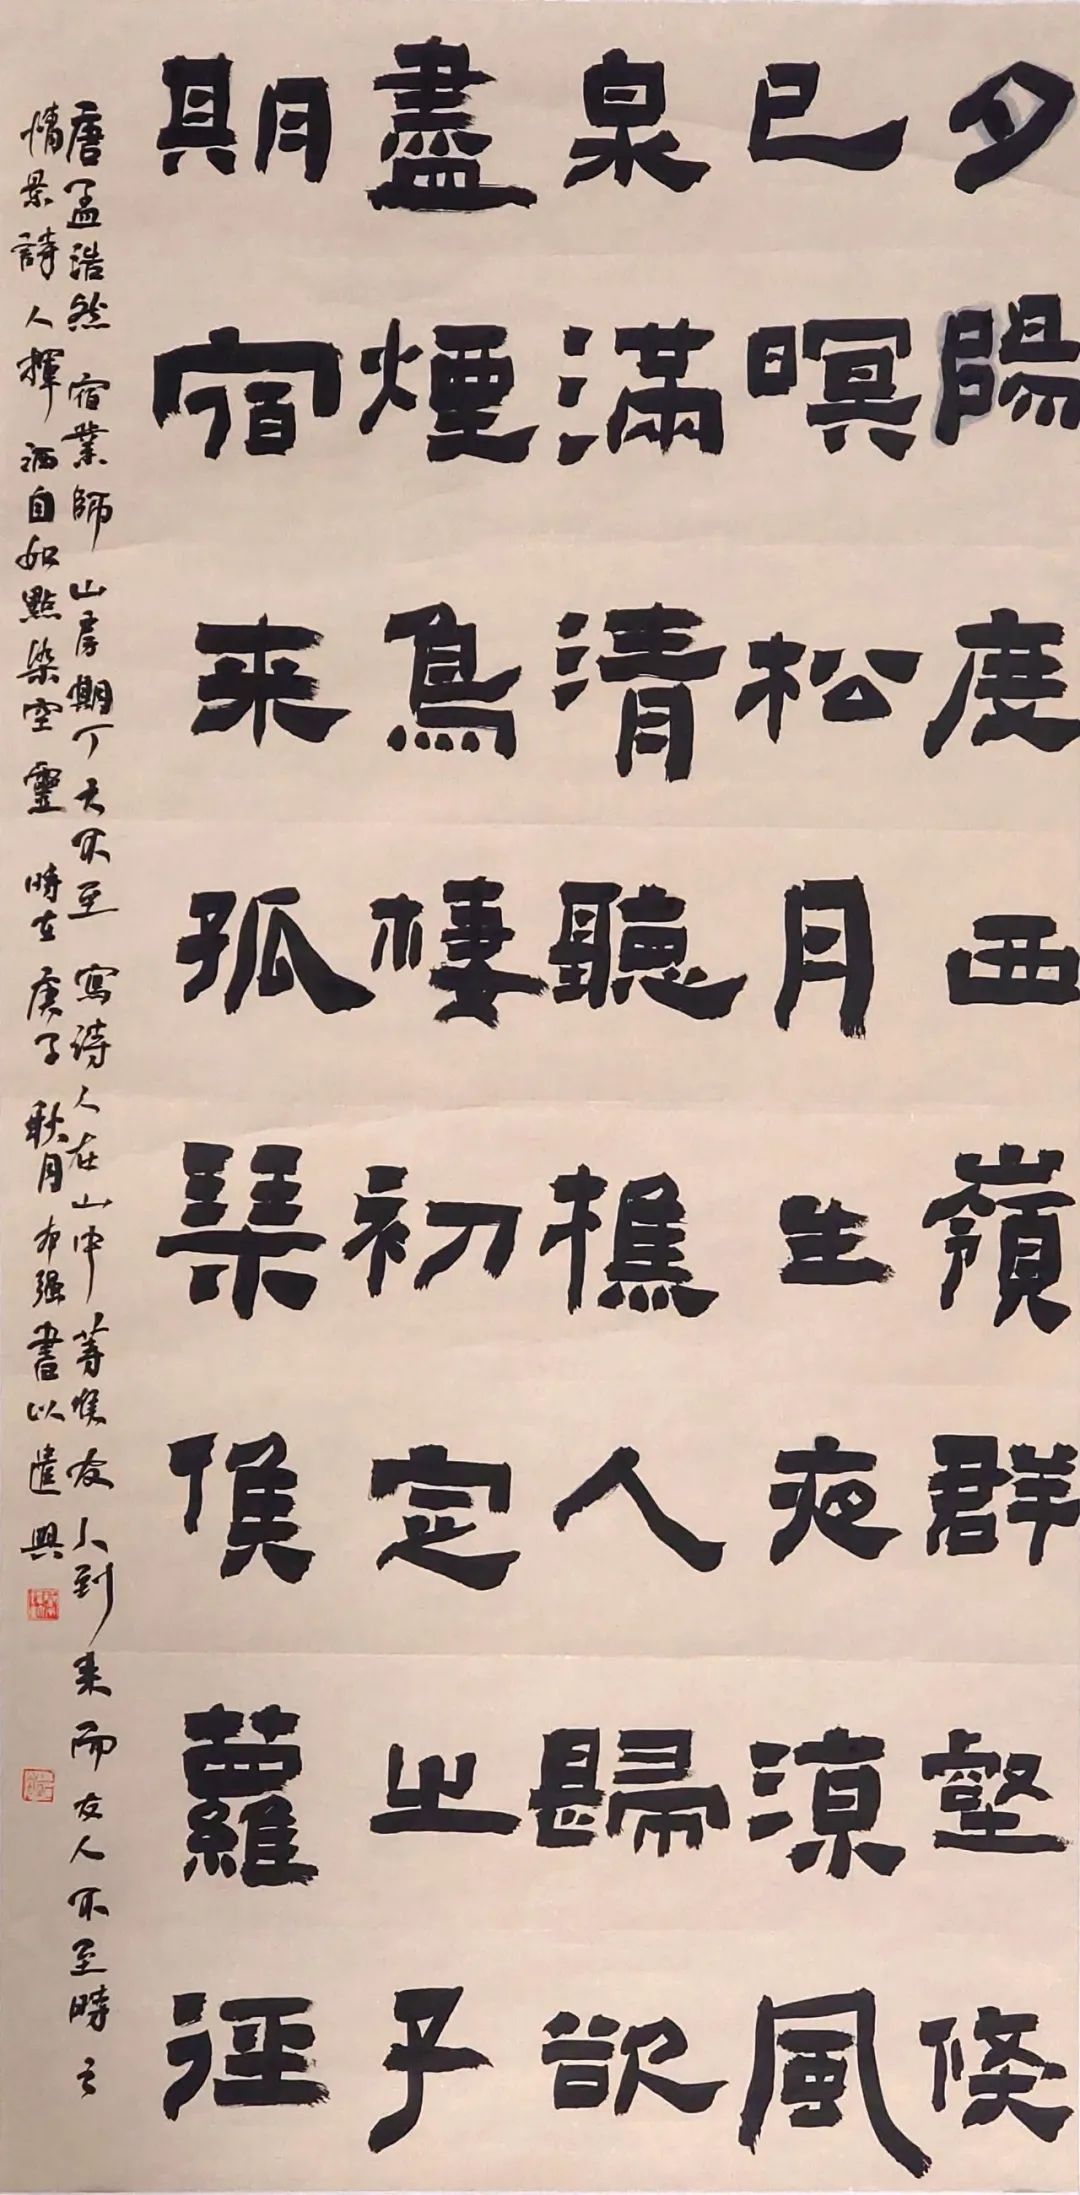 夕陽度西嶺群壑倏
已暝松月生夜涼風
泉滿清聽樵人歸欲
盡煙鳥棲初定之子
期宿来孤琴候蘿徑
唐孟浩然宿業師山房期丁大不至寫詩人在山中等候友人到来而友人不至時之
情景詩人揮洒自如點染空靈時在庚子耿月布强書以遣興